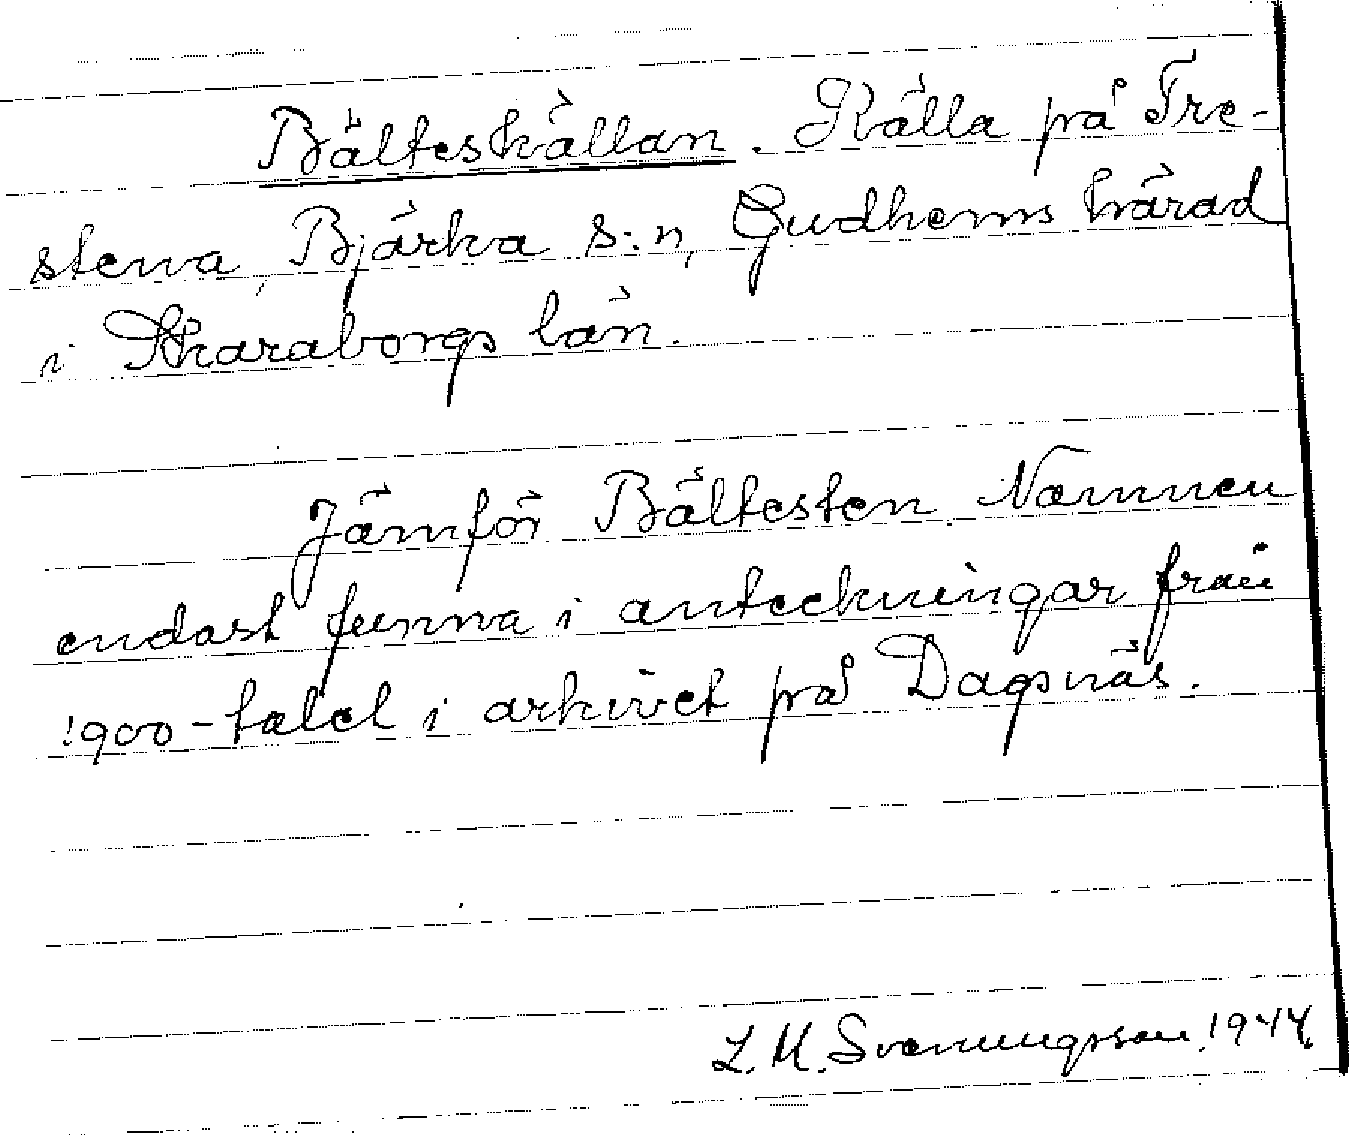 Bälteskällan. Källa på Tre-
stena, Bjärka s:n, Gudhems härad
i Skaraborgs län.
Jämför Bältesten. Namnen
endast funna i anteckningar från
1900-talet i arkivet på Dagsnäs.
L. M. Svenungsson. 1944.